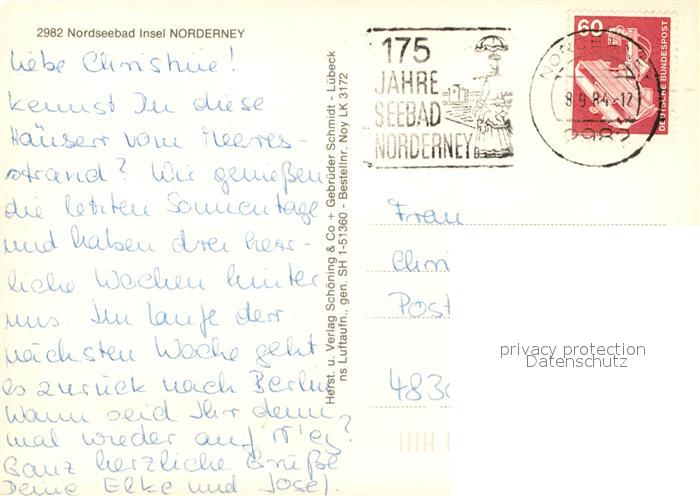 2982 Nordseebad Insel NORDERNEY
Liebe Christine!
kennst Du diese
Häuser vom Meeres-
strand? Wir genießen
die letzten Sonnentage
und haben drei herr-
liche Wochen hinter
uns. Im Laufe der
nächsten Woche geht
es zurück nach Berlin.
Wann seid Ihr denn
mal wieder auf N'ey?
Ganz herzliche Grüße
Deine Elke und Josef.
Herst. u. Verlag Schöning & Co + Gebrüder Schmidt - Lübeck
ns Luftaufn., gen. SH 1-51360 - Bestellnr. Noy LK 3172
175
JAHRE
SEEBAD
NORDERNEY
8.9.84-17
2982
60
DEUTSCHE BUNDESPOST
Frau
Chri
Post
483
privacy protection
Datenschutz